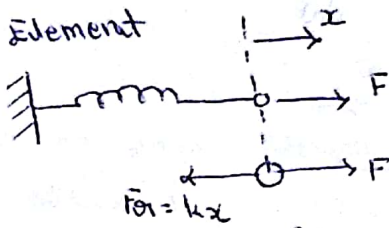 Element
x
F
F
Fr = kx